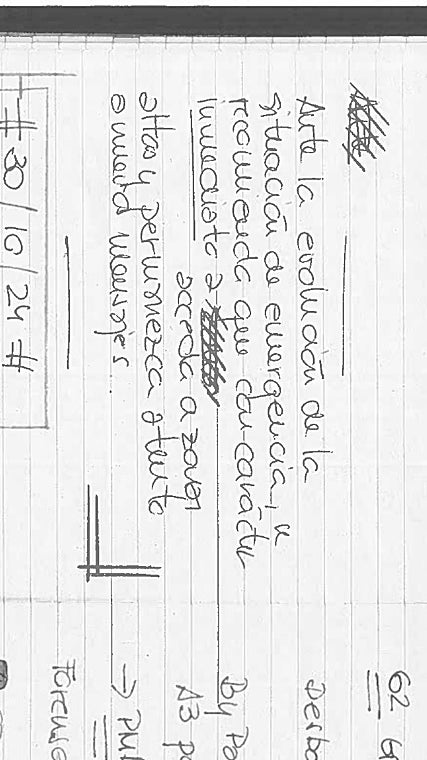 Ante la evolución de la
situación de emergencia, se
recomienda que con carácter
inmediato a
acceda a zonas
altas y permanezca atento
a nuevos mensajes.
# 30/10/24 #
62
Derbo
By Pa
A3 po
→ PMA
Forense